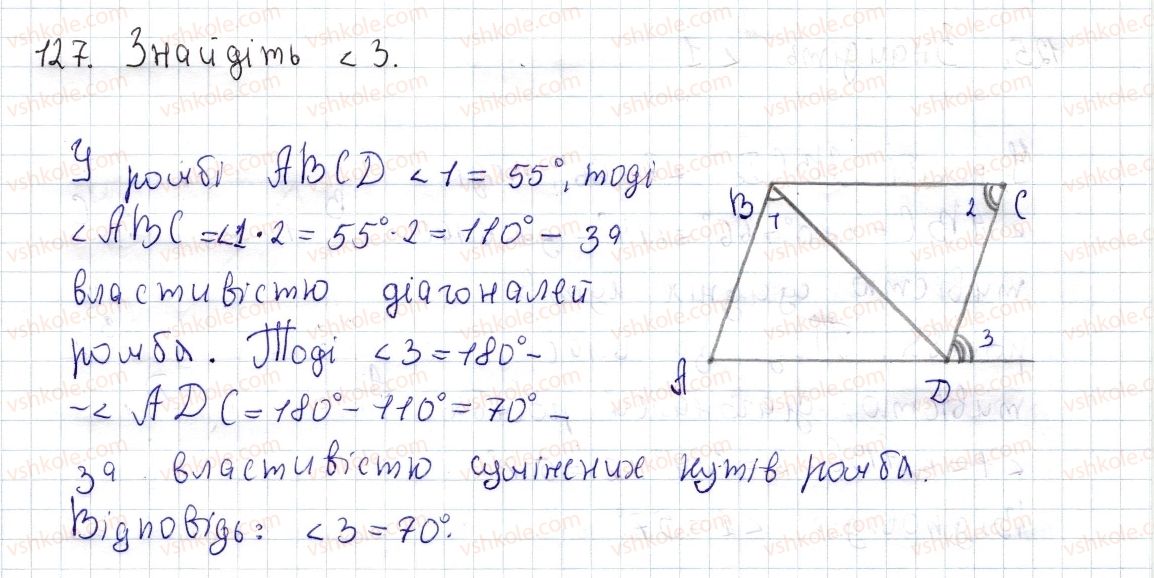 127. Знайдіть < 3.
У ромбі ABCD < 1 = 55°, тоді
< ABC = <1 · 2 = 55° · 2 = 110° - за
властивістю діагоналей
ромба. Тоді < 3 = 180° -
- < ADC = 180° - 110° = 70° -
за властивістю суміжних кутів ромба.
Відповідь: < 3 = 70°.
B 1 2 C
A D 3
vshkole.com